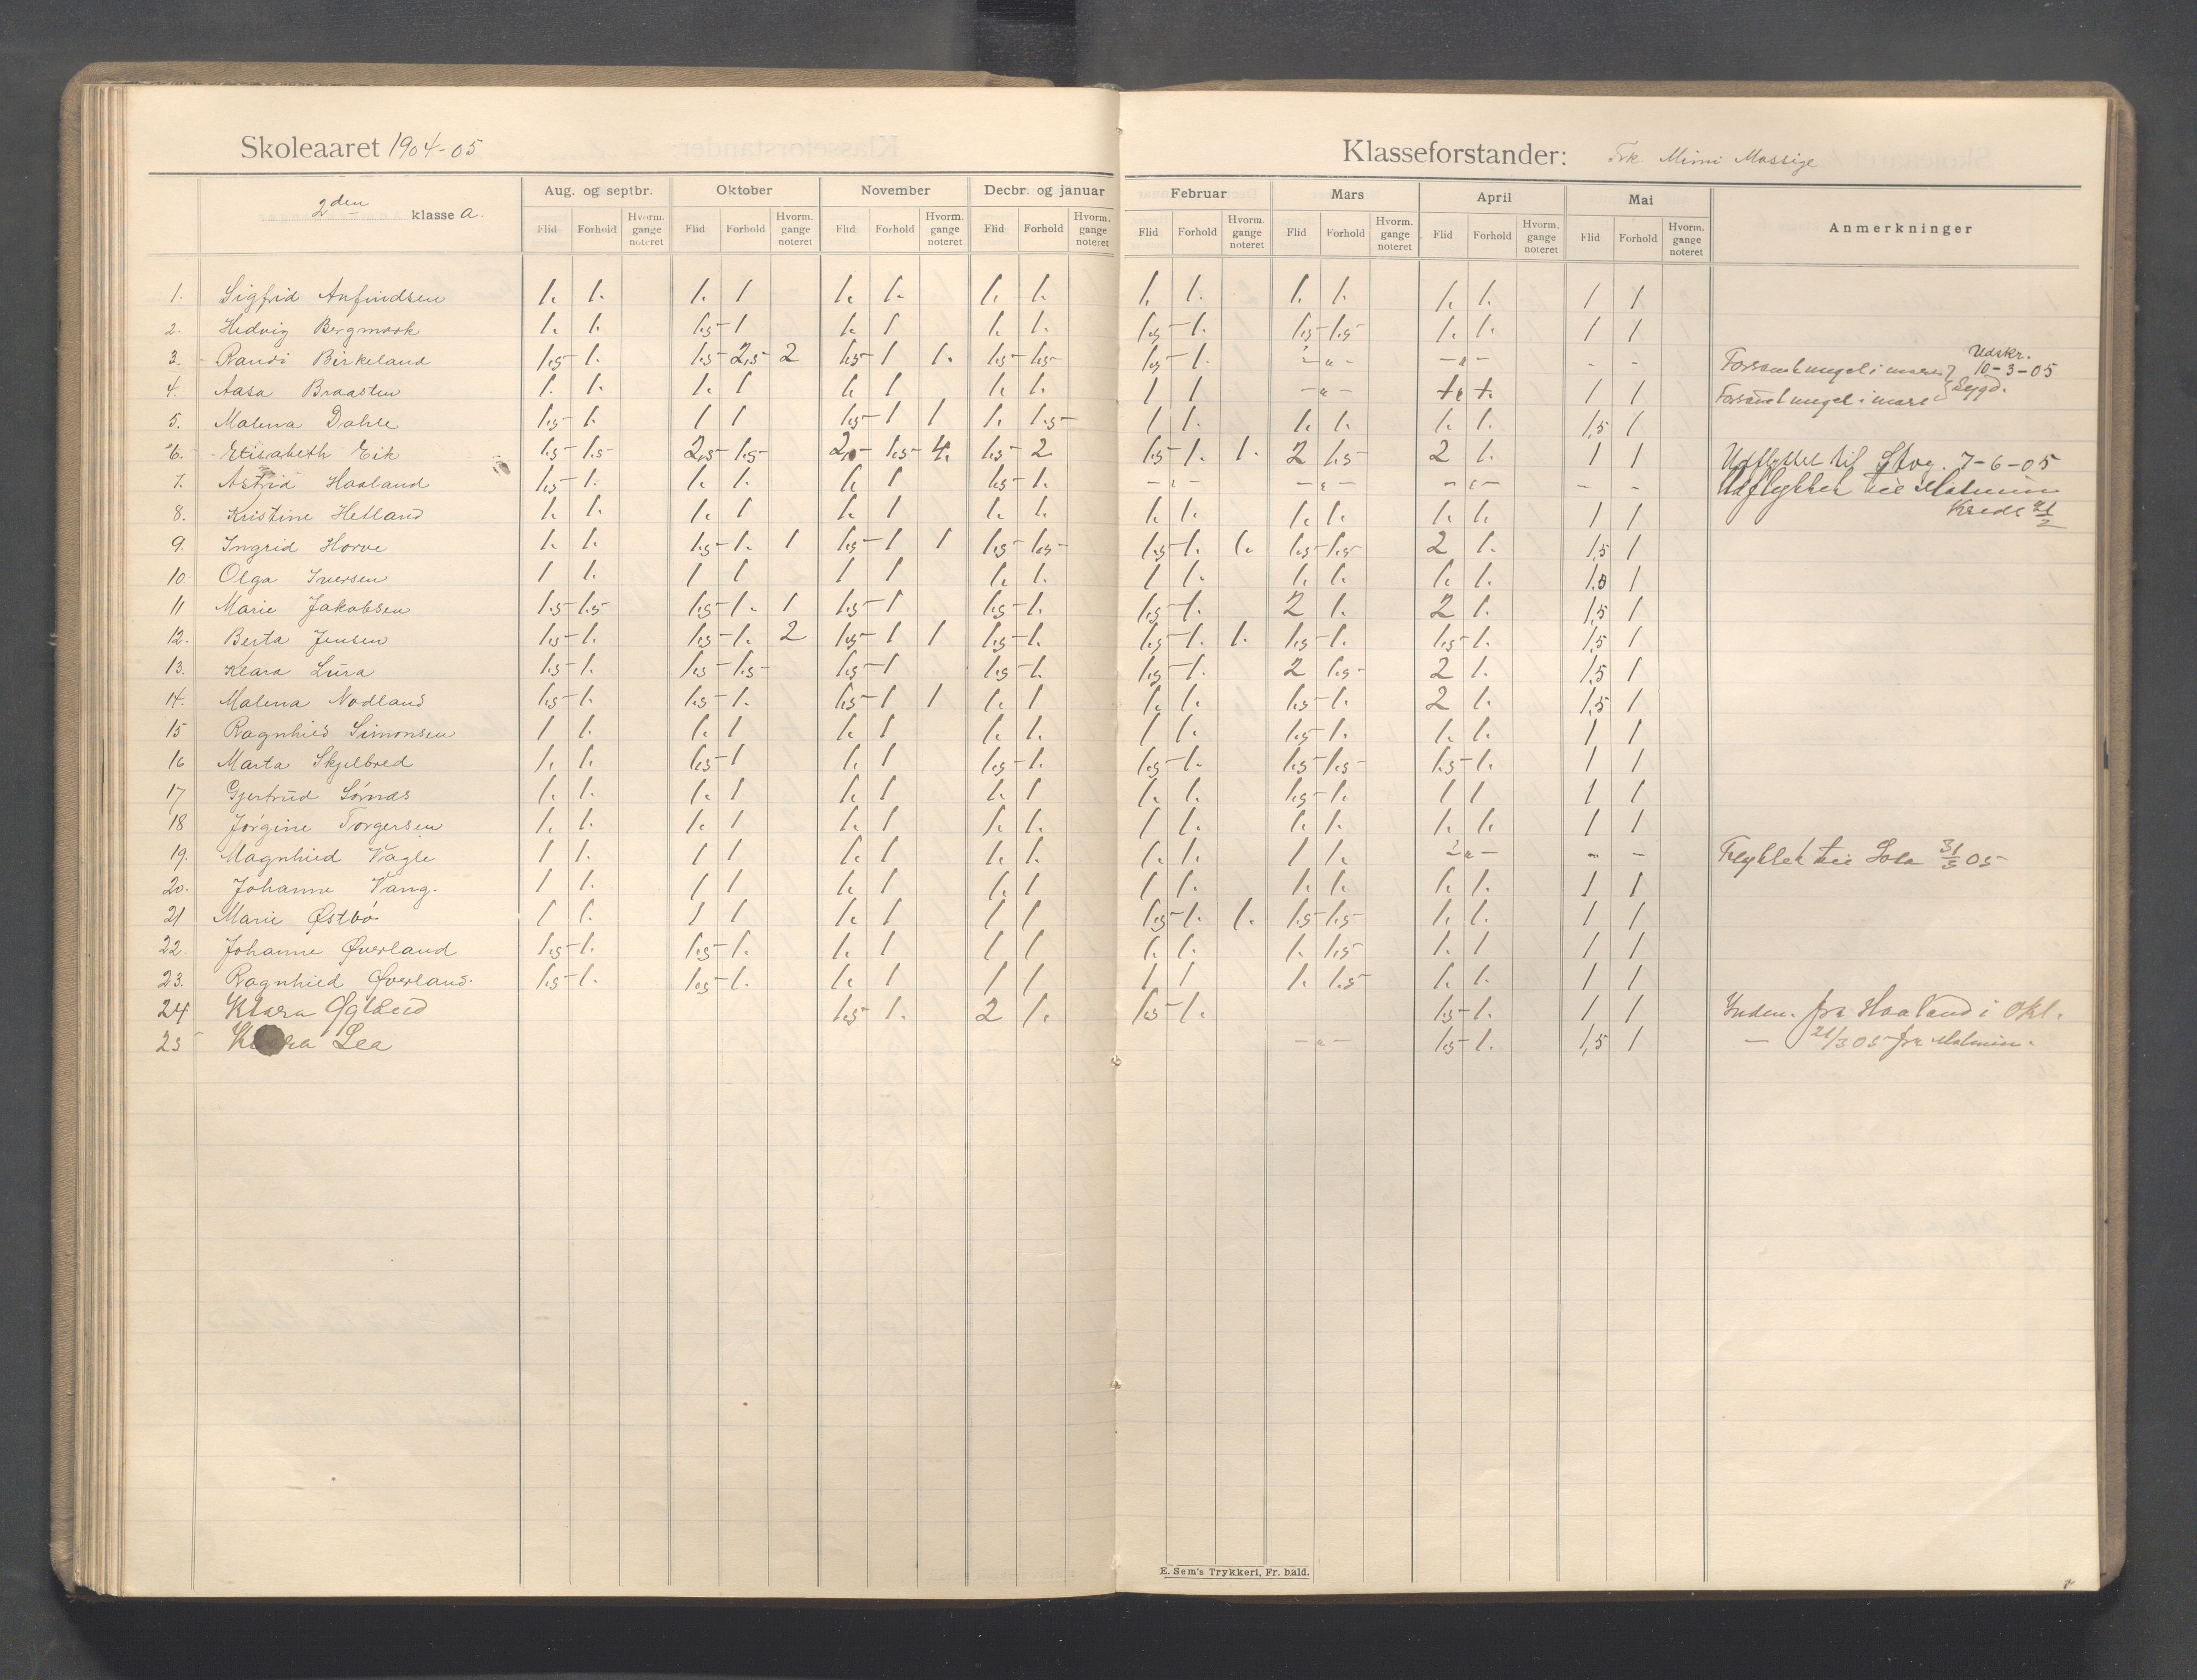 Skoleaaret 1904-05 Klasseforstander: Frk Mimi Mossige
2den klasse A. Aug. og septbr. Oktober November Decbr. og januar Februar Mars April Mai Anmerkninger
Flid Forhold Hvorm. gange noteret Flid Forhold Hvorm. gange noteret Flid Forhold Hvorm. gange noteret Flid Forhold Hvorm. gange noteret Flid Forhold Hvorm. gange noteret Flid Forhold Hvorm. gange noteret Flid Forhold Hvorm. gange noteret Flid Forhold Hvorm. gange noteret
1. Sigfrid Anfindsen 1. 1. 1. 1 1. 1. 1. 1. 1. 1. 1. 1. 1. 1. 1 1
2. Hedvig Bergmark 1. 1. 1.5- 1 1. 1 1. 1. 1.5- 1. 1.5- 1.5- 1. 1. 1 1
3. Randi Birkeland 1.5- 1. 1.5- 2,5- 2 1.5- 1 1. 1.5- 1.5- 1.5- 1. - " - - " - - - i mars Udskr. 10-3-05
4. Aasa Braasten 1. 1. 1. 1 1. 1 1. 1. 1 1 - " - 1. 1. 1 1 i mars Sygd.
5. Malena Dahle 1.5- 1. 1 1 1.5- 1 1 1. 1.5- 1 1. 1. 1. 1. 1. 1,5 1
6. Elisabeth Eik 1.5- 1.5- 2,5- 1.5- 2, 1.5- 4. 1.5- 2 1.5- 1. 1. 2 1.5- 2 1. 1 1 Udflyttet til Stvg. 7-6-05
7. Astrid Haaland 1.5- 1. 1. 1. 1. 1 1.5- 1. - " - - " - - " - - - Udflyttet til Malmin
Kreds 21/2
8. Kristine Hetland 1. 1. 1. 1 1. 1 1. 1. 1. 1. 1. 1. 1. 1. 1 1
9. Ingrid Horve 1. 1. 1.5- 1. 1 1.5- 1 1 1.5- 1.5- 1.5- 1. 1. 1.5- 1.5- 2 1. 1,5 1
10. Olga Iversen 1 1. 1 1 1 1 1. 1. 1 1. 1. 1. 1. 1. 1.0 1
11 Marie Jakobsen 1.5- 1.5- 1.5- 1. 1 1.5- 1 1.5- 1. 1.5- 1. 2 1. 2 1. 1,5 1
12. Berta Jensen 1.5- 1. 1.5- 1. 2 1.5- 1 1 1.5- 1. 1.5- 1. 1. 1.5- 1. 1.5- 1. 1,5 1
13. Klara Lura 1.5- 1. 1.5- 1.5- 1.5- 1 1.5- 1. 1.5- 1. 2 1.5- 2 1. 1,5 1
14. Malena Nodland 1.5- 1. 1.5- 1. 1.5- 1 1 1. 1 1. 1. 1.5- 1. 2 1. 1,5 1
15 Ragnhild Simonsen 1 1. 1. 1 1. 1 1. 1. 1 1. 1.5- 1. 1. 1. 1 1
16 Marta Skjelbred 1. 1. 1.5- 1 1. 1 1.5- 1. 1.5- 1. 1.5- 1.5- 1.5- 1. 1 1
17 Gjertrud Sørnæs 1. 1. 1. 1 1. 1 1. 1 1. 1. 1.5- 1. 1 1 1 1
18 Jørgine Torgersen 1. 1. 1. 1 1. 1 1. 1. 1 1. 1. 1. 1. 1. 1 1
19. Magnhild Vagle 1 1. 1 1 1. 1 1. 1. 1. 1. 1 1. - " - - - Flyttet til Sola 31/3 05
20. Johanne Vang. 1 1. 1 1 1. 1 1. 1 1 1. 1. 1. 1. 1. 1 1
21 Marie Østbø 1 1. 1 1 1. 1 1 1 1.5- 1. 1. 1.5- 1.5- 1. 1. 1 1
22. Johanne Øverland 1.5- 1. 1.5- 1. 1. 1 1 1 1. 1. 1. 1.5- 1. 1 1 1
23. Ragnhild Øverland. 1.5- 1. 1.5- 1. 1. 1 1 1 1 1 1. 1.5- 1. 1. 1 1
24 Klara Øglænd 1.5- 1. 2 1. 1.5- 1. 1.5- 1. 1 1 Indm. fra Haaland i Okt.
25 Lea - " - 1.5- 1. 1,5 1 — 21/3 05 fra Malmin.
E. Sem's Trykkeri, Fr. hald.